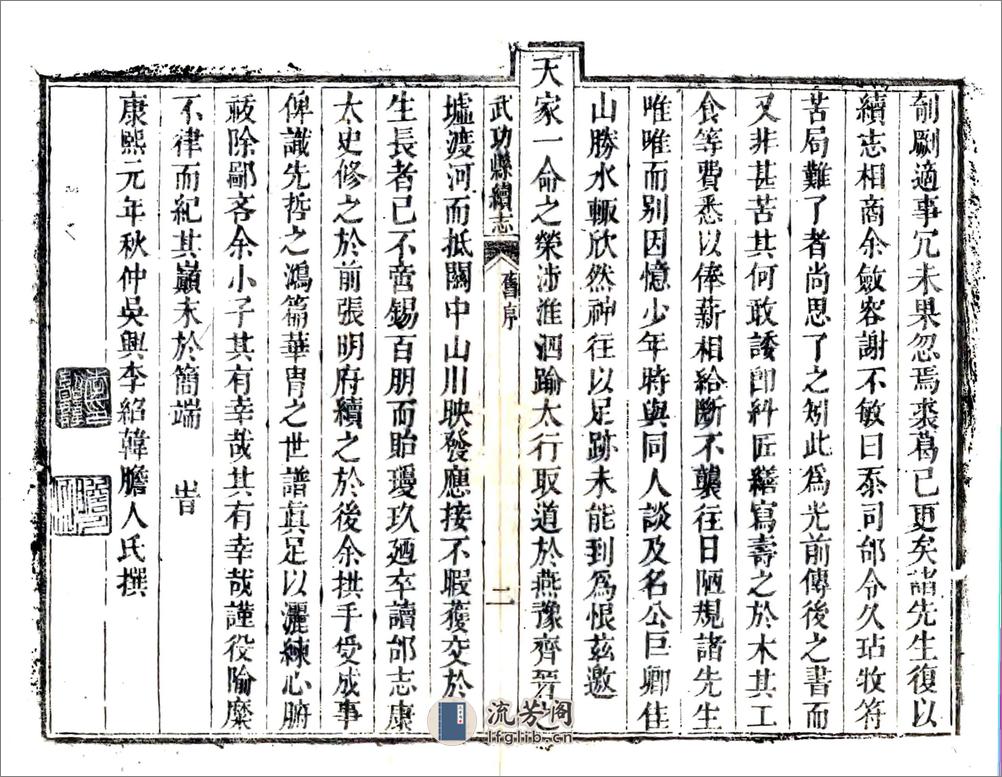 剞劂適事冗未果忽焉裘葛已更矣諸先生復以
續志相商余斂容謝不敏曰忝司邰令久玷牧符
苦局難了者尚思了之矧此為光前傳後之書而
又非甚苦其何敢諉卽糾匠繕寫壽之於木其工
食等費悉以俸薪相給斷不襲往日陋規諸先生
唯唯而别因憶少年時與同人談及名公巨卿佳
山勝水輙欣然神往以足跡未能到爲恨玆邀
天家一命之榮沛淮泗踰太行取道於燕豫齊晉之
武功縣續志 舊序 二
墟渡河而抵關中山川映發應接不暇獲交於
生長者已不啻錫百朋而貽瓊玖廼卒讀邰志康
太史修之於前張明府續之於後余拱手受成事
俾識先哲之鴻篇華胄之世譜眞足以灑練心腑
祓除鄙吝余小子其有幸哉其有幸哉謹役隃糜
不律而紀其巔末於簡端 旹
康熙元年秋仲吳興李紹韓膽人氏撰
流芳阁
lfglib.cn